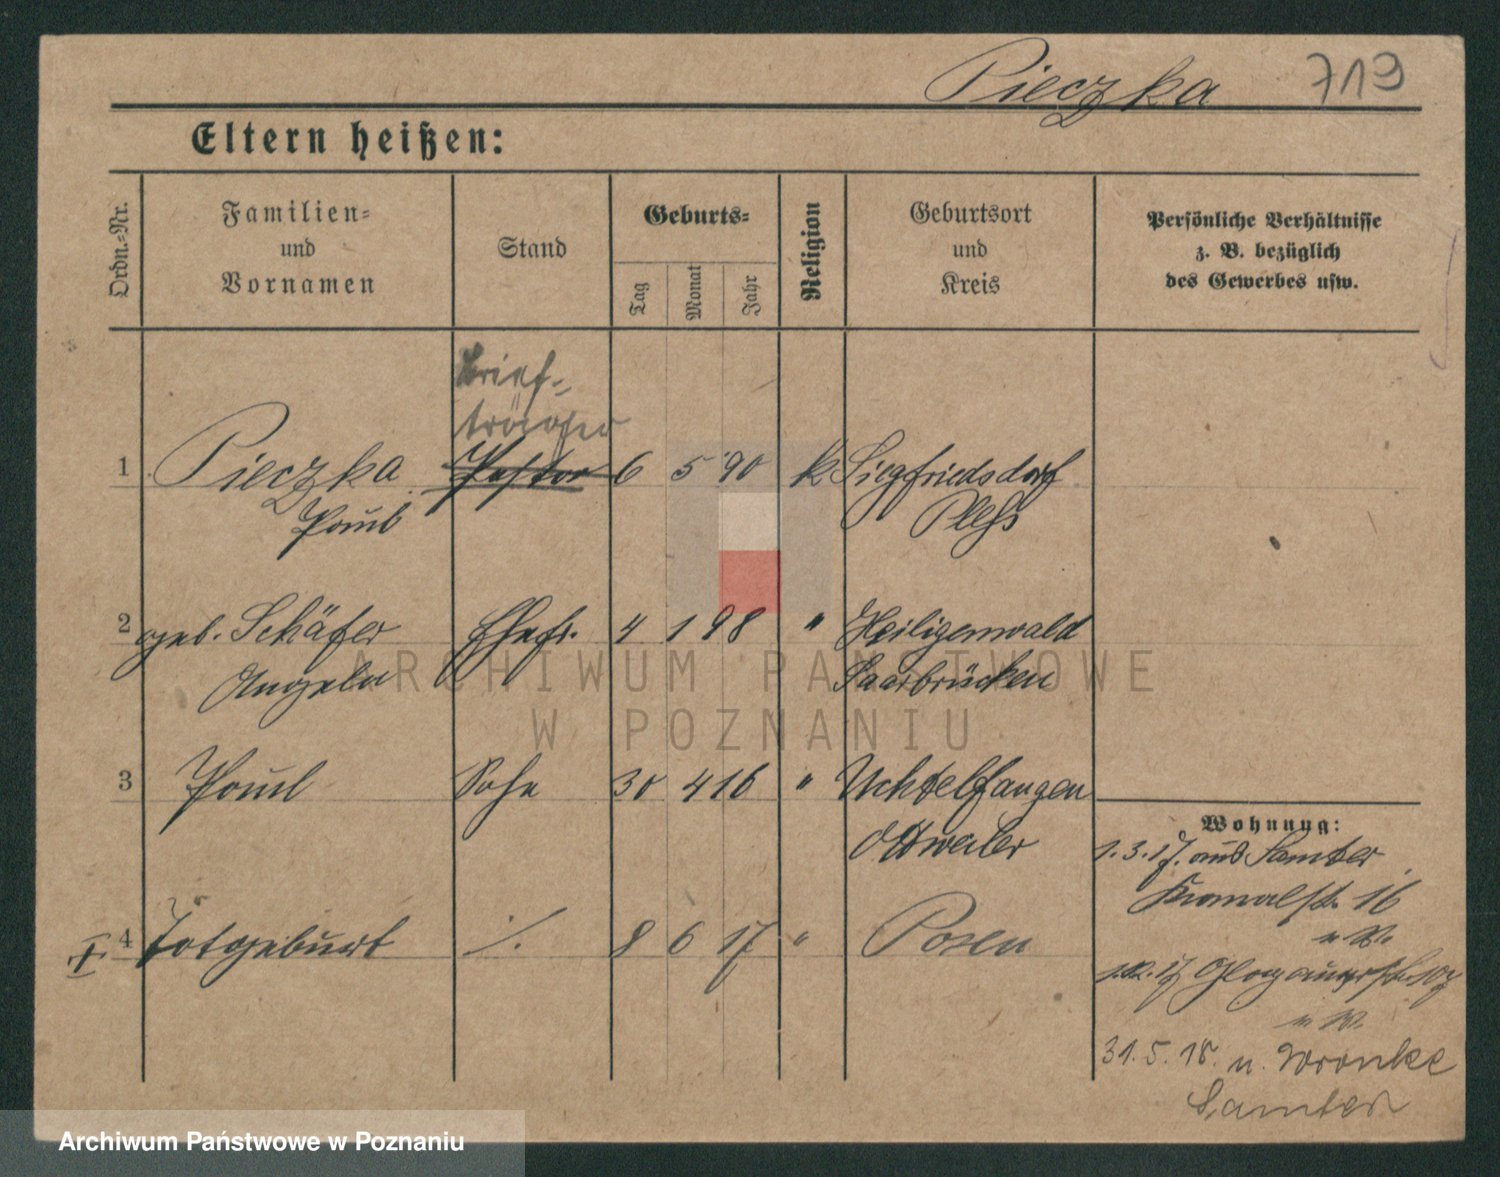 Pieczka 719
Eltern heißen:
Ordn.-Nr.
Familien-
und
Vornamen
Stand
Geburts-
Tag
Monat
Jahr
Religion
Geburtsort
und
Kreis
Persönliche Verhältnisse
z. B. bezüglich
des Gewerbes usw.
Brief-
träger
1 Pieczka Pastor 6 5 90 k. Siegfriedsdorf
Paul Pleß
2 geb. Schäfer Ehefr. 4 1 98 " Heiligenwald
Angela Saarbrücken
3 Paul Sohn 30 4 16 " Uchtelfangen
Ottweiler
4 Totgeburt ./. 8 6 17 " Posen
Wohnung:
1.3.17. aus Samter
16
n. W.
17
n. W.
31.5.18. n. Wronke
Samter
ARCHIWUM PAŃSTWOWE
W POZNANIU
Archiwum Państwowe w Poznaniu